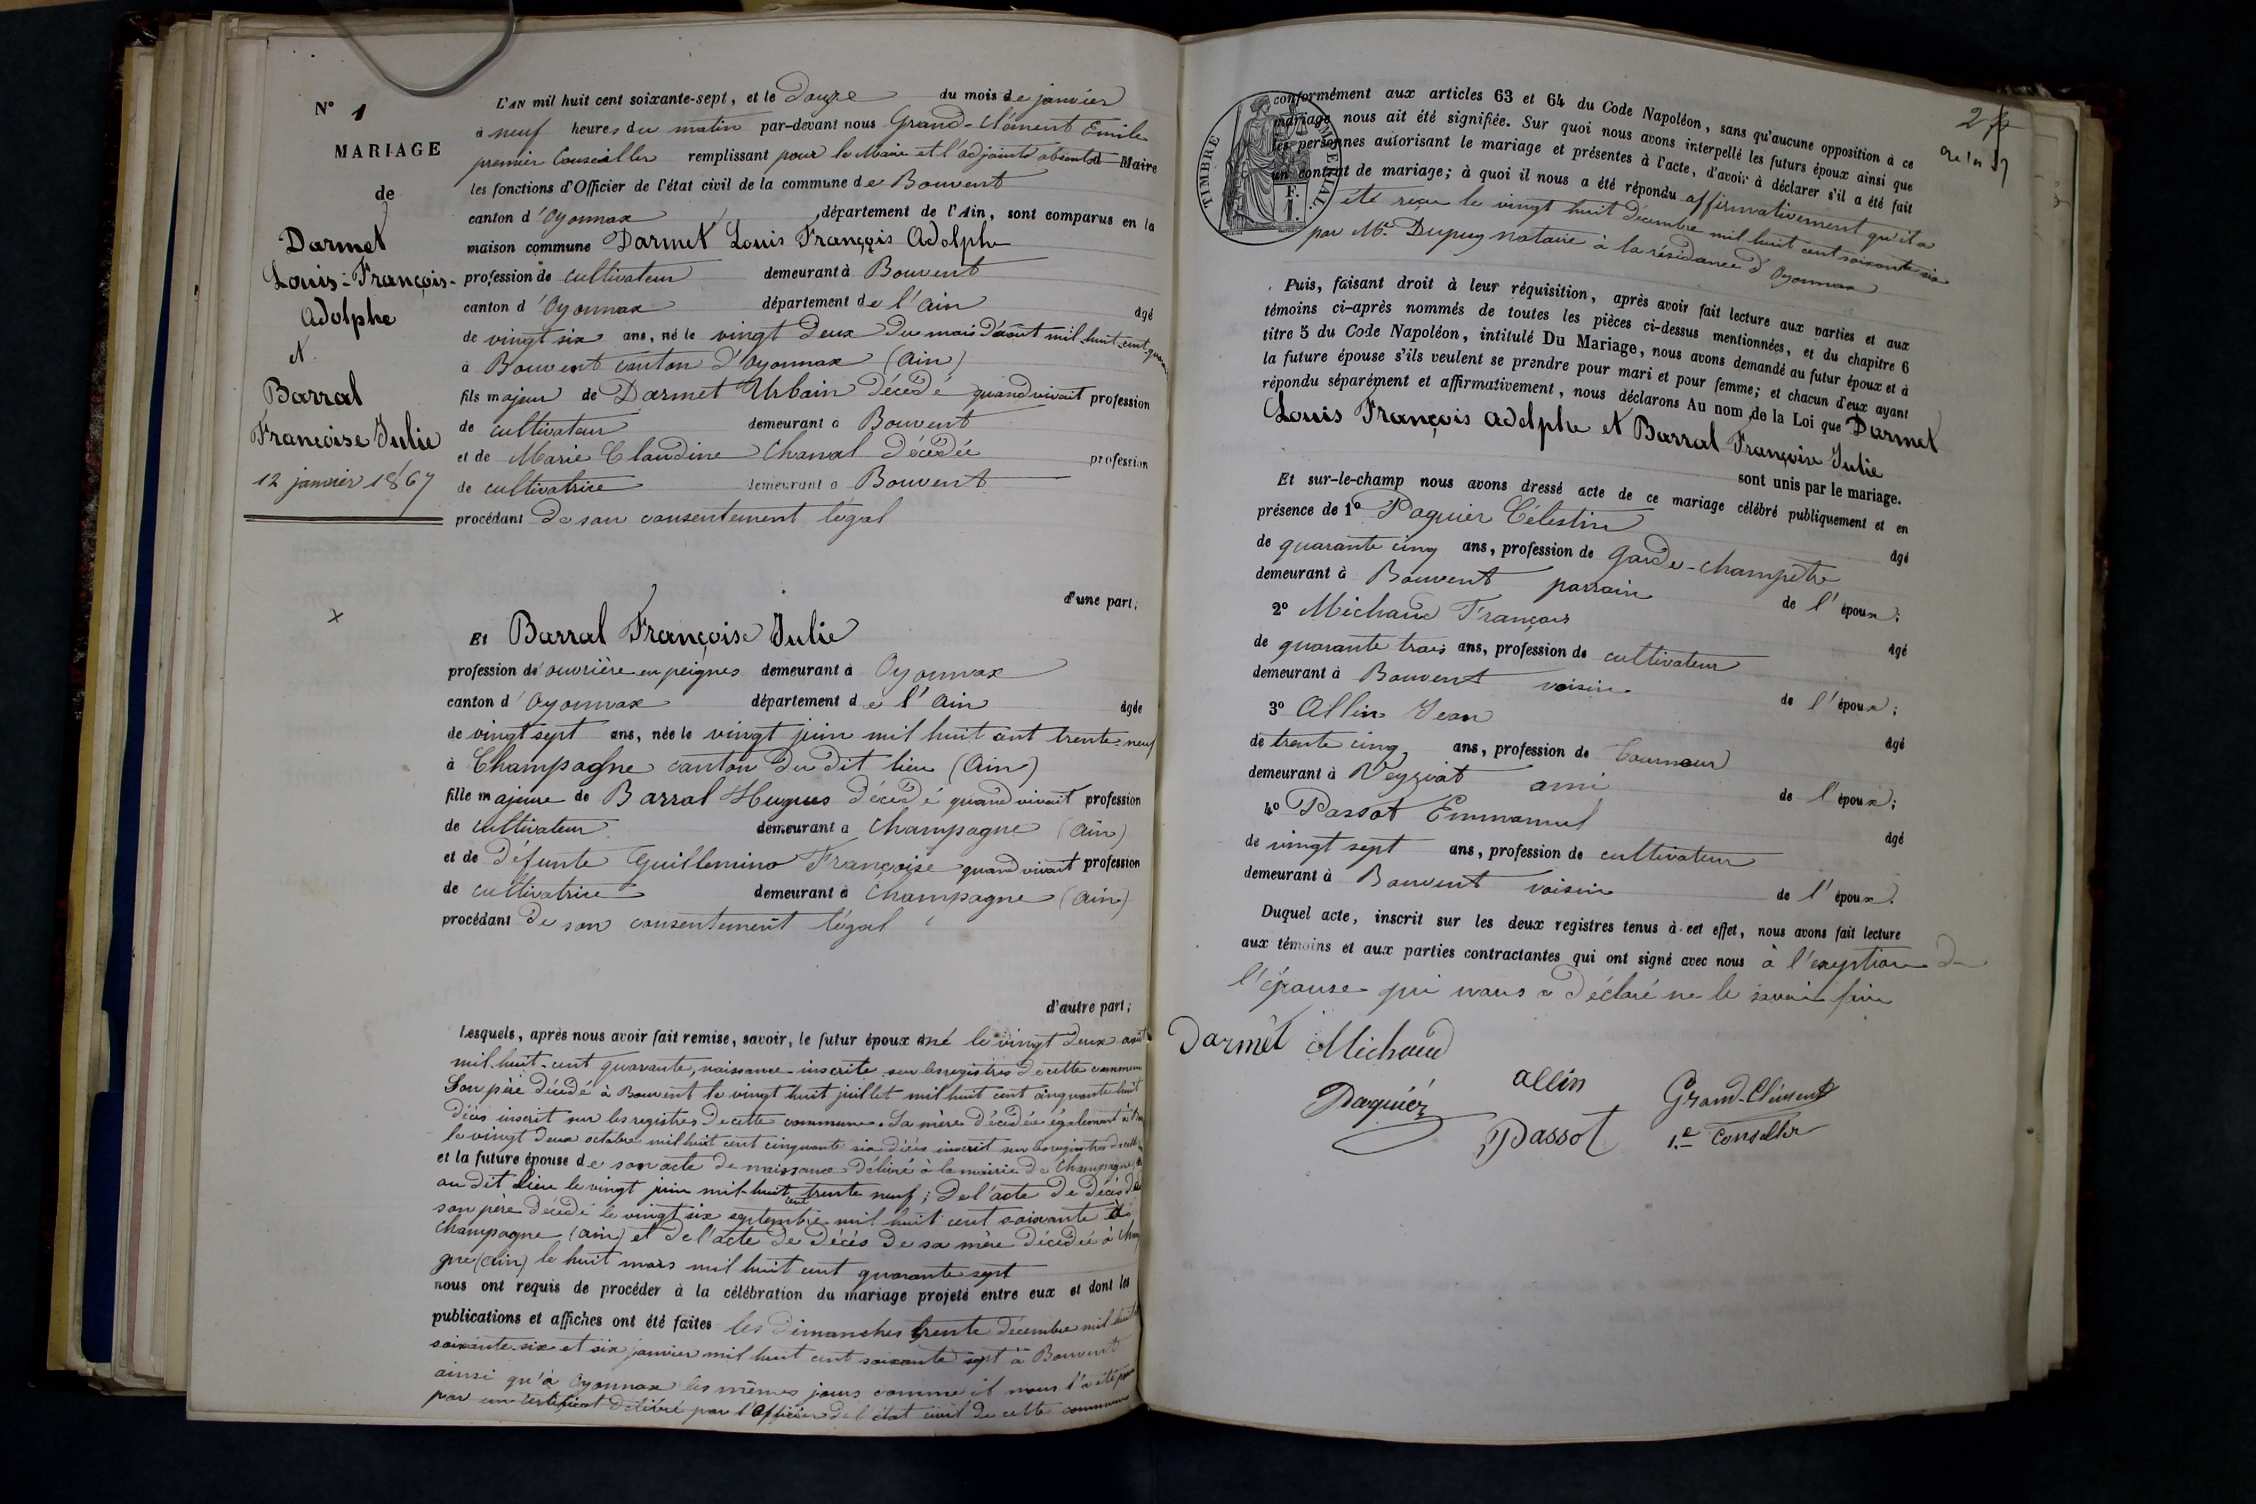 N° 1
MARIAGE
de
Darmet
Louis-François-
Adolphe
et
Barral
Françoise Julie
12 janvier 1867
L'AN mil huit cent soixante-sept, et le Douze du mois de janvier
à neuf heures du matin par-devant nous Grand-Clément Emile
premier Conseiller remplissant pour le Maire et l'adjoint absents Maire
les fonctions d'Officier de l'état civil de la commune de Bouvent
canton d'Oyonnax, département de l'Ain, sont comparus en la
maison commune Darmet Louis François Adolphe
profession de cultivateur demeurant à Bouvent
canton d'Oyonnax département de l'Ain âgé
de vingt six ans, né le vingt Deux du mois d'août mil-huit-cent-quarante
à Bouvent canton d'Oyonnax (Ain)
fils majeur de Darmet Urbain Décédé quand vivait profession
de cultivateur demeurant à Bouvent
et de Marie Claudine Chanal Décédée profession
de cultivatrice demeurant à Bouvent
procédant De son consentement légal
d'une part;
Et Barral Françoise Julie
profession d'ouvrière en peignes demeurant à Oyonnax
canton d'Oyonnax département de l'Ain âgée
de vingt sept ans, née le vingt juin mil huit cent trente-neuf
à Champagne canton du dit lieu (Ain)
fille majeure de Barral Hugues Décédé quand vivait profession
de cultivateur demeurant à Champagne (Ain)
et de Défunte Guillemino Françoise quand vivait profession
de cultivatrice demeurant à Champagne (Ain)
procédant De son consentement légal
d'autre part;
Lesquels, après nous avoir fait remise, savoir, le futur époux né le vingt Deux août
mil-huit-cent quarante, naissance inscrite sur les registres de cette commune
Son père Décédé à Bouvent le vingt huit juillet mil huit cent cinquante huit
Décès inscrit sur les registres De cette commune. Sa mère Décédée également
le vingt Deux octobre mil huit cent cinquante six Décès inscrit sur les registres de cette
et la future épouse de son acte de naissance Délivré à la mairie De Champagne
au dit lieu le vingt juin mil-huit cent trente neuf; De l'acte De Décès De
son père Décédé le vingt six septembre mil huit cent soixante à
Champagne (Ain) et De l'acte De Décès De sa mère Décédée à Champa
gne (Ain) le huit mars mil huit cent quarante sept
nous ont requis de procéder à la célébration du mariage projeté entre eux et dont les
publications et affiches ont été faites les Dimanches trente Décembre mil huit
soixante-six et six janvier mil huit cent soixante sept à Bouvent
ainsi qu'à Oyonnax les mêmes jours comme il nous l'a été
par un certificat Délivré par l'Officier De l'état civil De cette commune
TIMBRE IMPERIAL
1 F.
conformément aux articles 63 et 64 du Code Napoléon, sans qu'aucune opposition à ce
mariage nous ait été signifiée. Sur quoi nous avons interpellé les futurs époux ainsi que
les personnes autorisant le mariage et présentes à l'acte, d'avoir à déclarer s'il a été fait
un contrat de mariage; à quoi il nous a été répondu affirmativement qu'il a
été reçu le vingt huit Décembre mil huit cent soixante six
par Me. Dupuy notaire à la résidence d'Oyonnax
Puis, faisant droit à leur réquisition, après avoir fait lecture aux parties et aux
témoins ci-après nommés de toutes les pièces ci-dessus mentionnées, et du chapitre 6
titre 5 du Code Napoléon, intitulé Du Mariage, nous avons demandé au futur époux et à
la future épouse s'ils veulent se prendre pour mari et pour femme; et chacun d'eux ayant
répondu séparément et affirmativement, nous déclarons Au nom de la Loi que Darmet
Louis François Adolphe et Barral Françoise Julie
sont unis par le mariage.
Et sur-le-champ nous avons dressé acte de ce mariage célébré publiquement et en
présence de 1° Paquier Célestin âgé
de quarante cinq ans, profession de Garde-champêtre
demeurant à Bouvent parrain de l'époux;
2° Michaud François âgé
de quarante trois ans, profession de cultivateur
demeurant à Bouvent voisin de l'époux;
3° Allin Jean âgé
de trente cinq ans, profession de tourneur
demeurant à Veyziat ami de l'époux;
4° Passot Emmanuel âgé
de vingt sept ans, profession de cultivateur
demeurant à Bouvent voisin de l'époux.
Duquel acte, inscrit sur les deux registres tenus à cet effet, nous avons fait lecture
aux témoins et aux parties contractantes qui ont signé avec nous à l'exception de
l'épouse qui nous a Déclaré ne le savoir faire
Darmet Michaud
Allin
Paquier Grand-Clément
Passot 1.er Conseiller